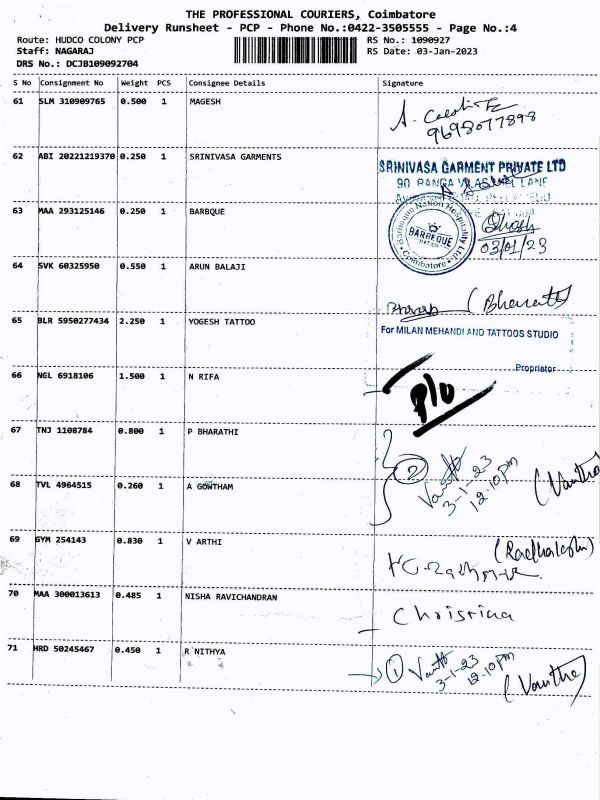 THE PROFESSIONAL COURIERS, Coimbatore
Delivery Runsheet - PCP - Phone No.:0422-3505555 - Page No.:4
Route: HUDCO COLONY PCP RS No.: 1090927
Staff: NAGARAJ RS Date: 03-Jan-2023
DRS No.: DCJB109092704
S No Consignment No Weight PCS Consignee Details Signature
61 SLM 310909765 0.500 1 MAGESH
9698077898
62 ABI 20221219370 0.250 1 SRINIVASA GARMENTS
SRINIVASA GARMENT PRIVATE LTD
63 MAA 293125146 0.250 1 BARBQUE
Barbeque Nation Hospitality Ltd
BARBEQUE
NATION
Coimbatore
03/01/23
64 SVK 60325950 0.550 1 ARUN BALAJI
(Bharath)
65 BLR 5950277434 2.250 1 YOGESH TATTOO
For MILAN MEHANDI AND TATTOOS STUDIO
Proprietor
66 NGL 6918106 1.500 1 N RIFA
P/U
67 TNJ 1108784 0.800 1 P BHARATHI
2
3-1-23
12.10pm
68 TVL 4964515 0.260 1 A GOWTHAM
69 GYM 254143 0.830 1 V ARTHI
70 MAA 300013613 0.485 1 NISHA RAVICHANDRAN
Christina
71 HRD 50245467 0.450 1 R NITHYA
1
3-1-23
12.10pm